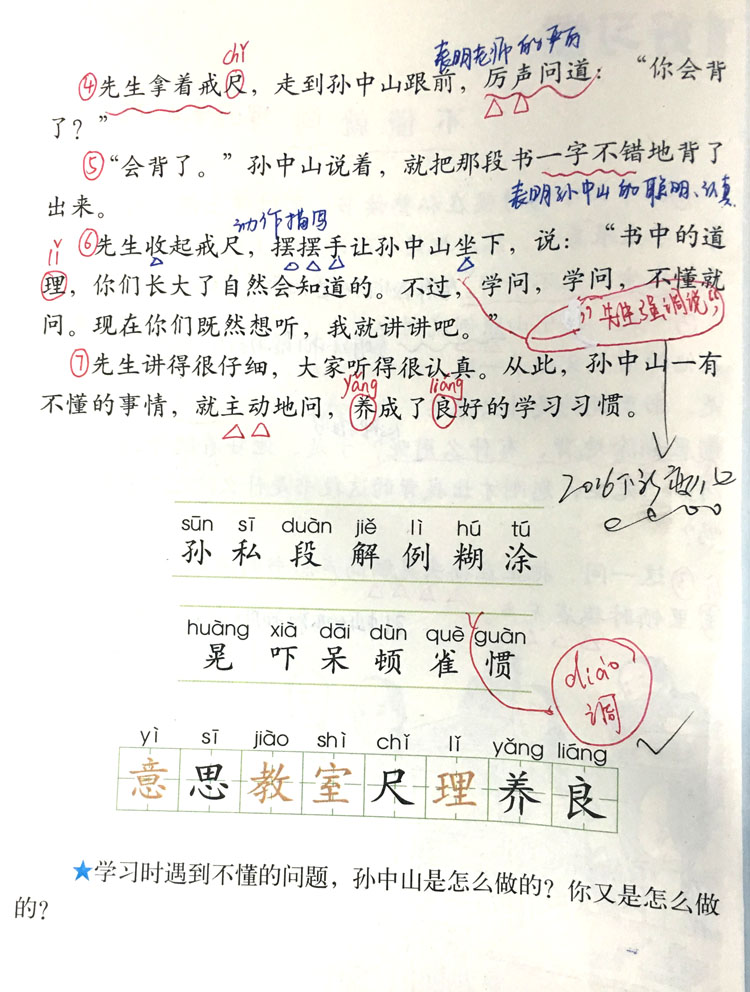 chǐ 表明老师的严厉
④先生拿着戒尺，走到孙中山跟前，厉声问道：“你会背
了？”
⑤“会背了。”孙中山说着，就把那段书一字不错地背了
出来。
表明孙中山的聪明、认真
动作描写
lǐ ⑥先生收起戒尺，摆摆手让孙中山坐下，说：“书中的道
理，你们长大了自然会知道的。不过，学问，学问，不懂就
问。现在你们既然想听，我就讲讲吧。”
先生强调说
⑦先生讲得很仔细，大家听得很认真。从此，孙中山一有
yǎng liáng
不懂的事情，就主动地问，养成了良好的学习习惯。
sūn sī duàn jiě lì hú tú
孙 私 段 解 例 糊 涂
huàng xià dāi dùn què guàn
晃 吓 呆 顿 雀 惯
diào
调
yì sī jiào shì chǐ lǐ yǎng liáng
意 思 教 室 尺 理 养 良
★学习时遇到不懂的问题，孙中山是怎么做的？你又是怎么做
的？